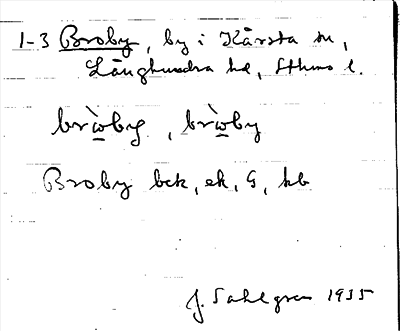 1-3 Broby, by i Kårsta sn,
Långhundra hd, Sthms l.
brò̲by, brò̲by
Broby bck, ek, G, hb
J. Sahlgren 1935